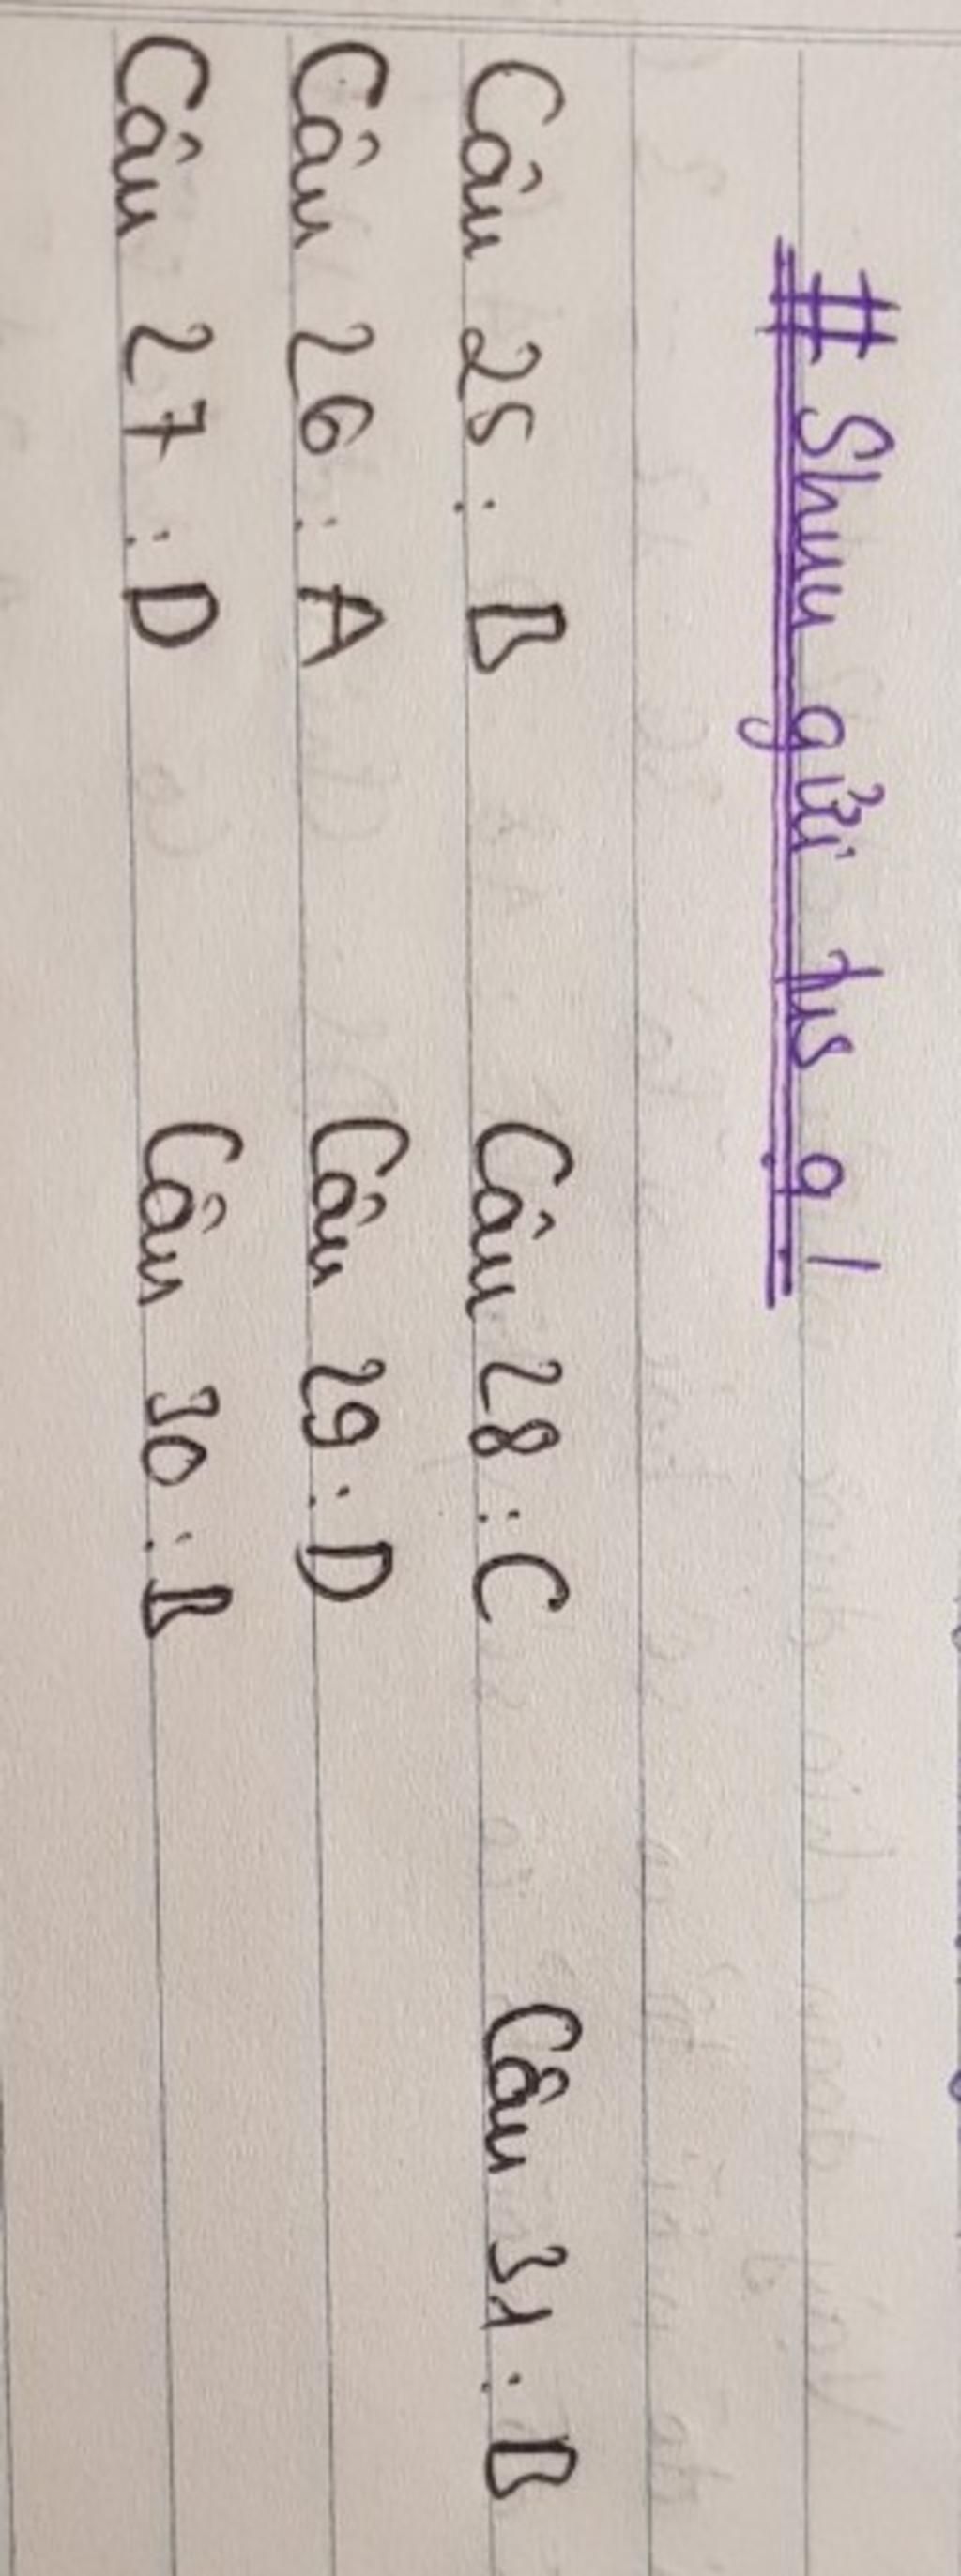 # Shuu gửi tus ạ!
Câu 25: B Câu 28: C Câu 31: B
Câu 26: A Câu 29: D
Câu 27: D Câu 30: B